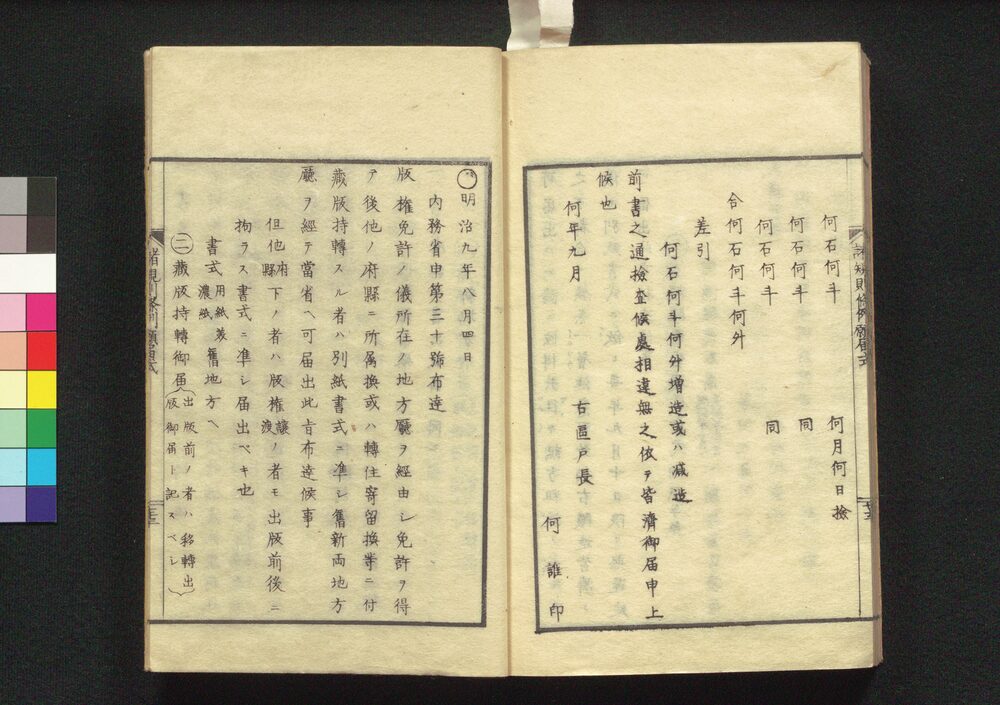 何石何斗 何月何日撿
何石何斗 同
何石何斗 同
合何石何斗何升
差引
何石何斗何升増造或ハ減造
前書之通撿査候處相違無之依テ皆濟御届申上
候也
何年九月 右區戸長 何誰印
〇明治九年八月四日
内務省申第三十號布達
版權免許ノ儀所在ノ地方廳ヲ経由シ免許ヲ得
テ後他ノ府縣ニ所属換或ハ轉住寄留換等ニ付
藏版持轉スル者ハ別紙書式ニ準シ舊新両地方
廳ヲ經テ當省ヘ可届出此旨布達候事
但他府縣下ノ者ハ版權讓渡ノ者モ出版前後ニ
拘ラス書式ニ準シ届出ベキ也
書式 用紙美濃紙 舊地方ヘ
㊁藏版持轉御届 出版前ノ者ハ移轉出版御届ト記スベシ
諸規則條例願届式